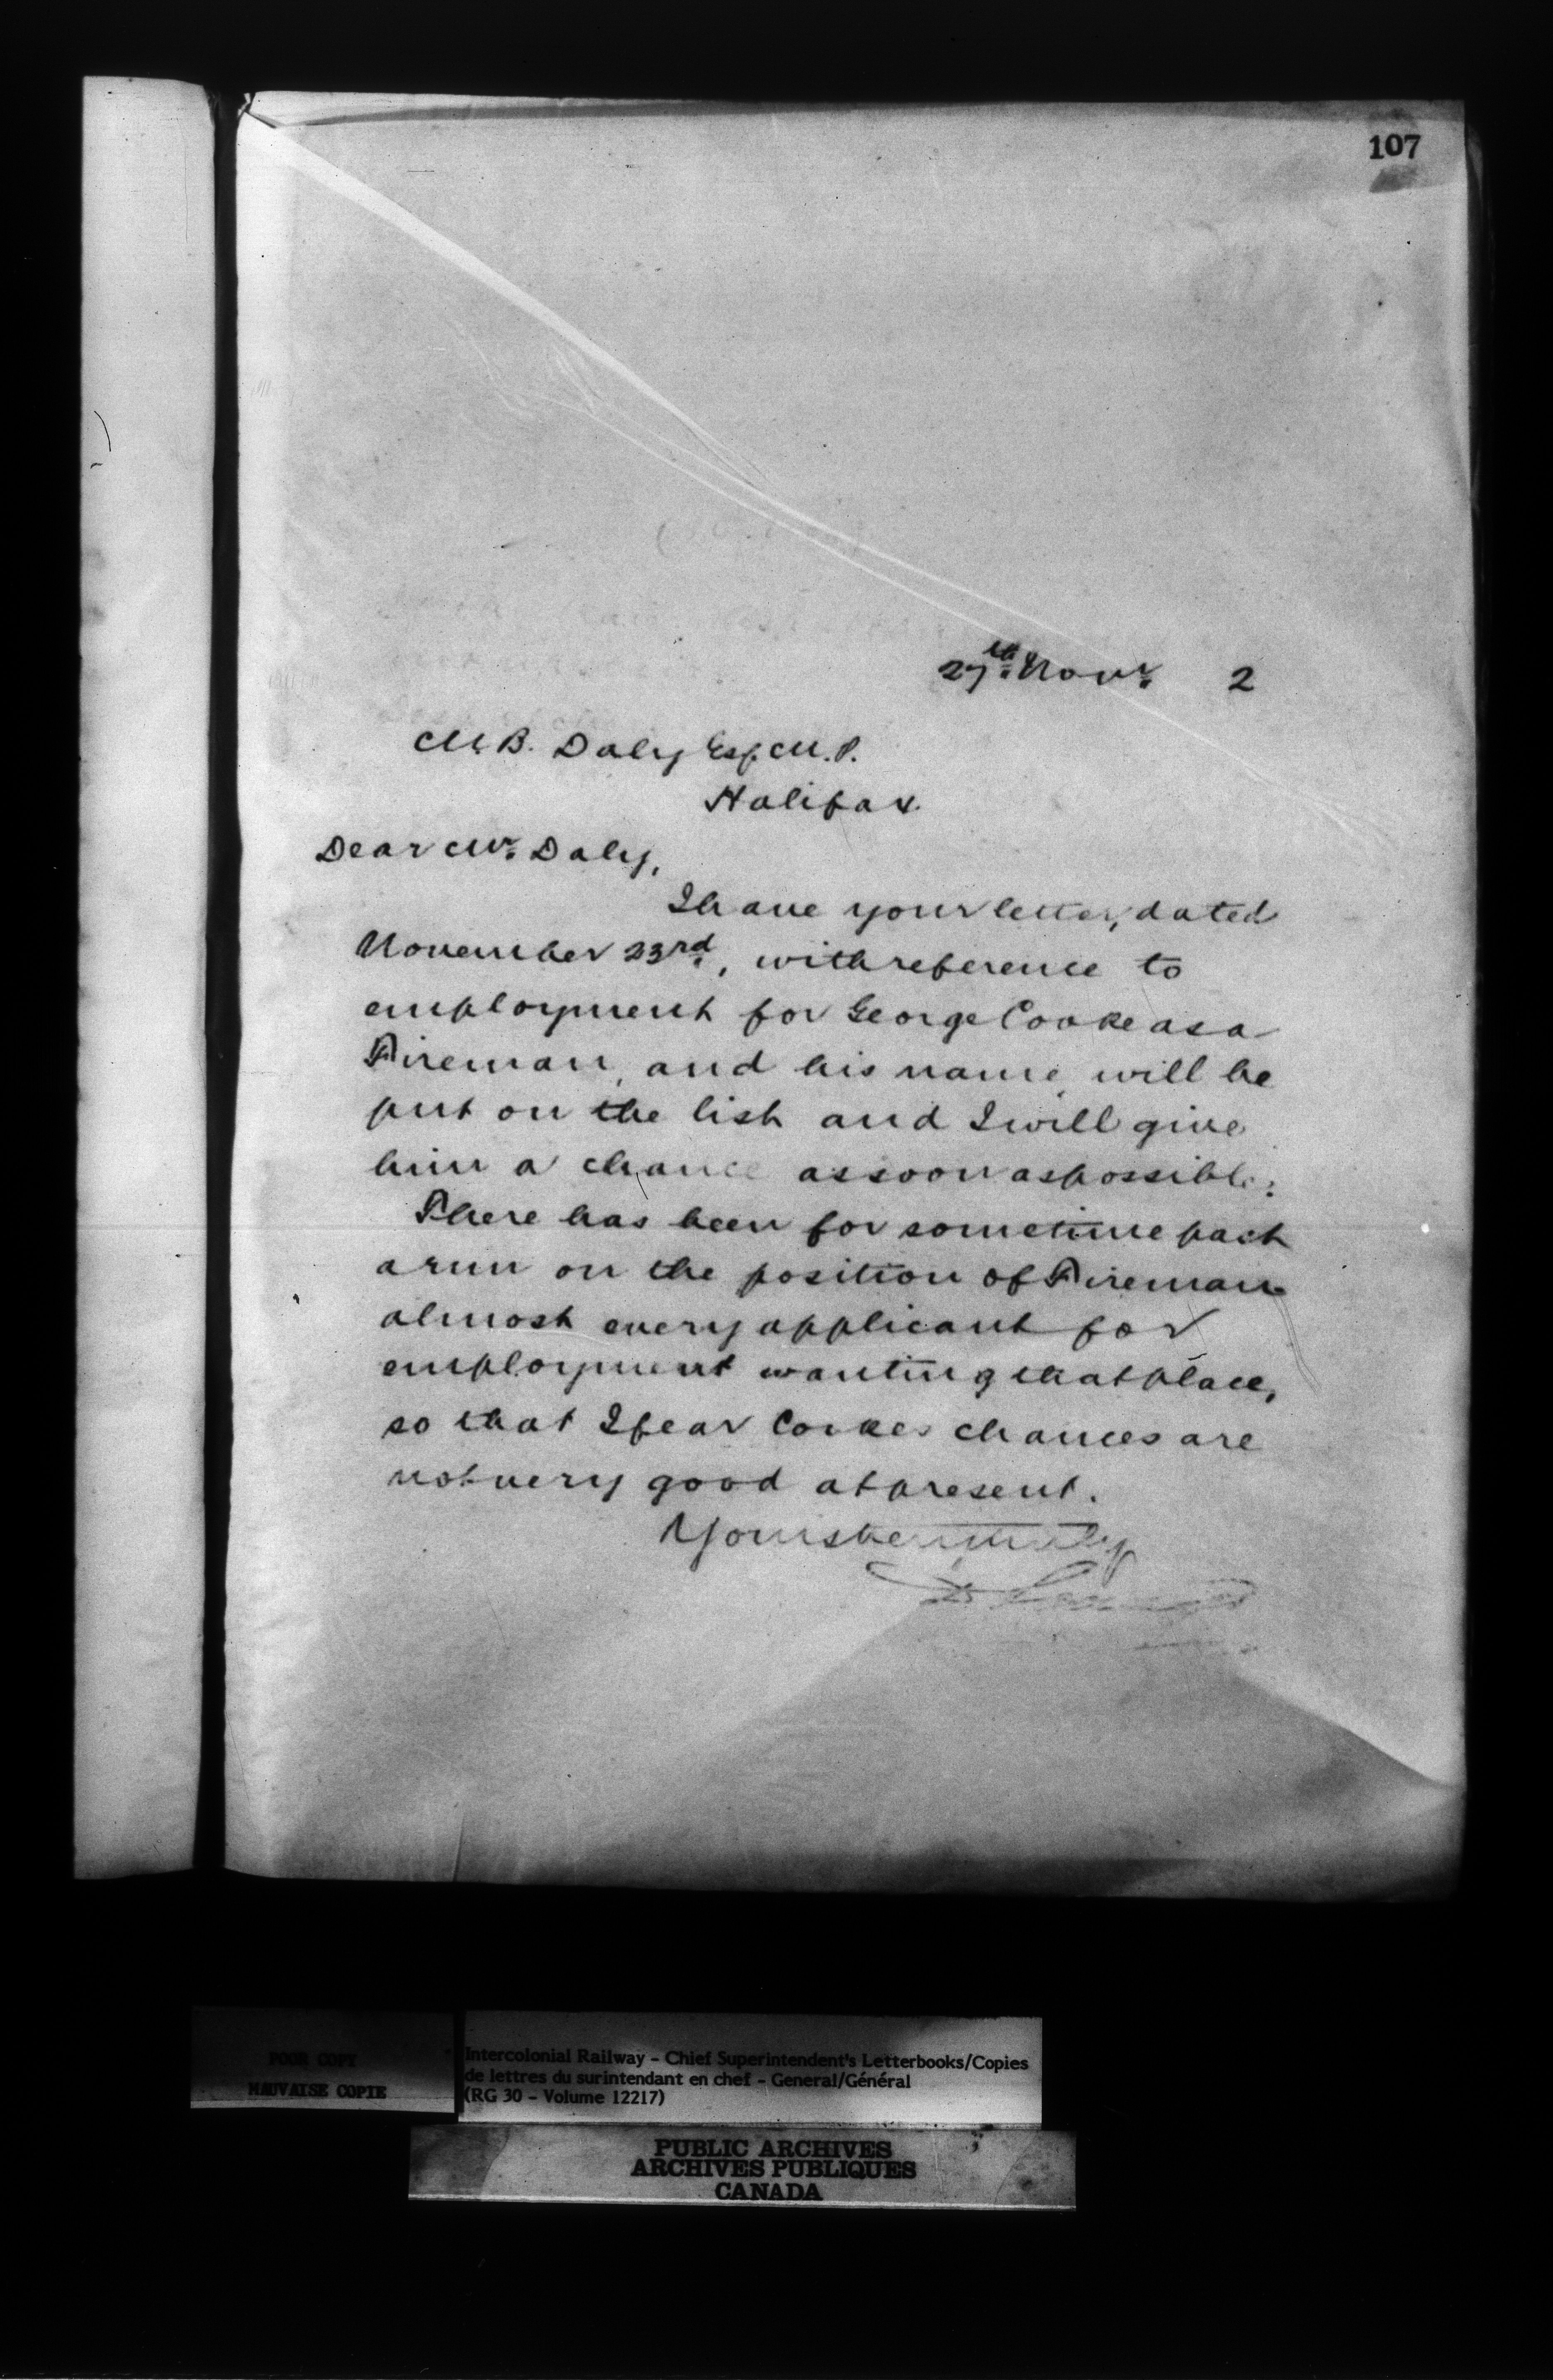 107
27th Novr. 2
M. B. Daly Esq. M.P.
Halifax.
Dear Mr. Daly,
I have your letter, dated
November 23rd, with reference to
employment for George Cooke as a
Fireman, and his name will be
put on the list and I will give
him a chance as soon as possible.
There has been for sometime past
a run on the position of Fireman
almost every applicant for
employment wanting that place,
so that I fear Cookes chances are
not very good at present.
Yours very truly
POOR COPY
MAUVAISE COPIE
Intercolonial Railway - Chief Superintendent's Letterbooks/Copies
de lettres du surintendant en chef - General/Général
(RG 30 - Volume 12217)
PUBLIC ARCHIVES
ARCHIVES PUBLIQUES
CANADA